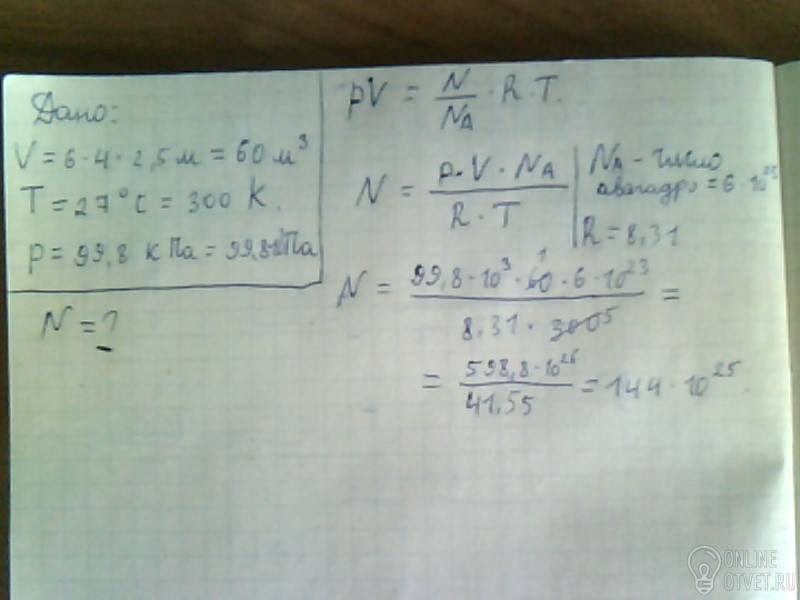 Дано:
V = 6·4·2,5м = 60 м³
T = 27°C = 300 K.
p = 99,8 кПа = 99,8·10³Па
N = ?
pV = N/NA · R·T.
N = p·V·NA / R·T
NA - число
авагадро = 6·10²³
R = 8,31
N = 99,8·10³·60·6·10²³ / 8,31·300 5 =
= 598,8·10²⁶ / 41,55 = 144·10²⁵.
ONLINE
OTVET.RU